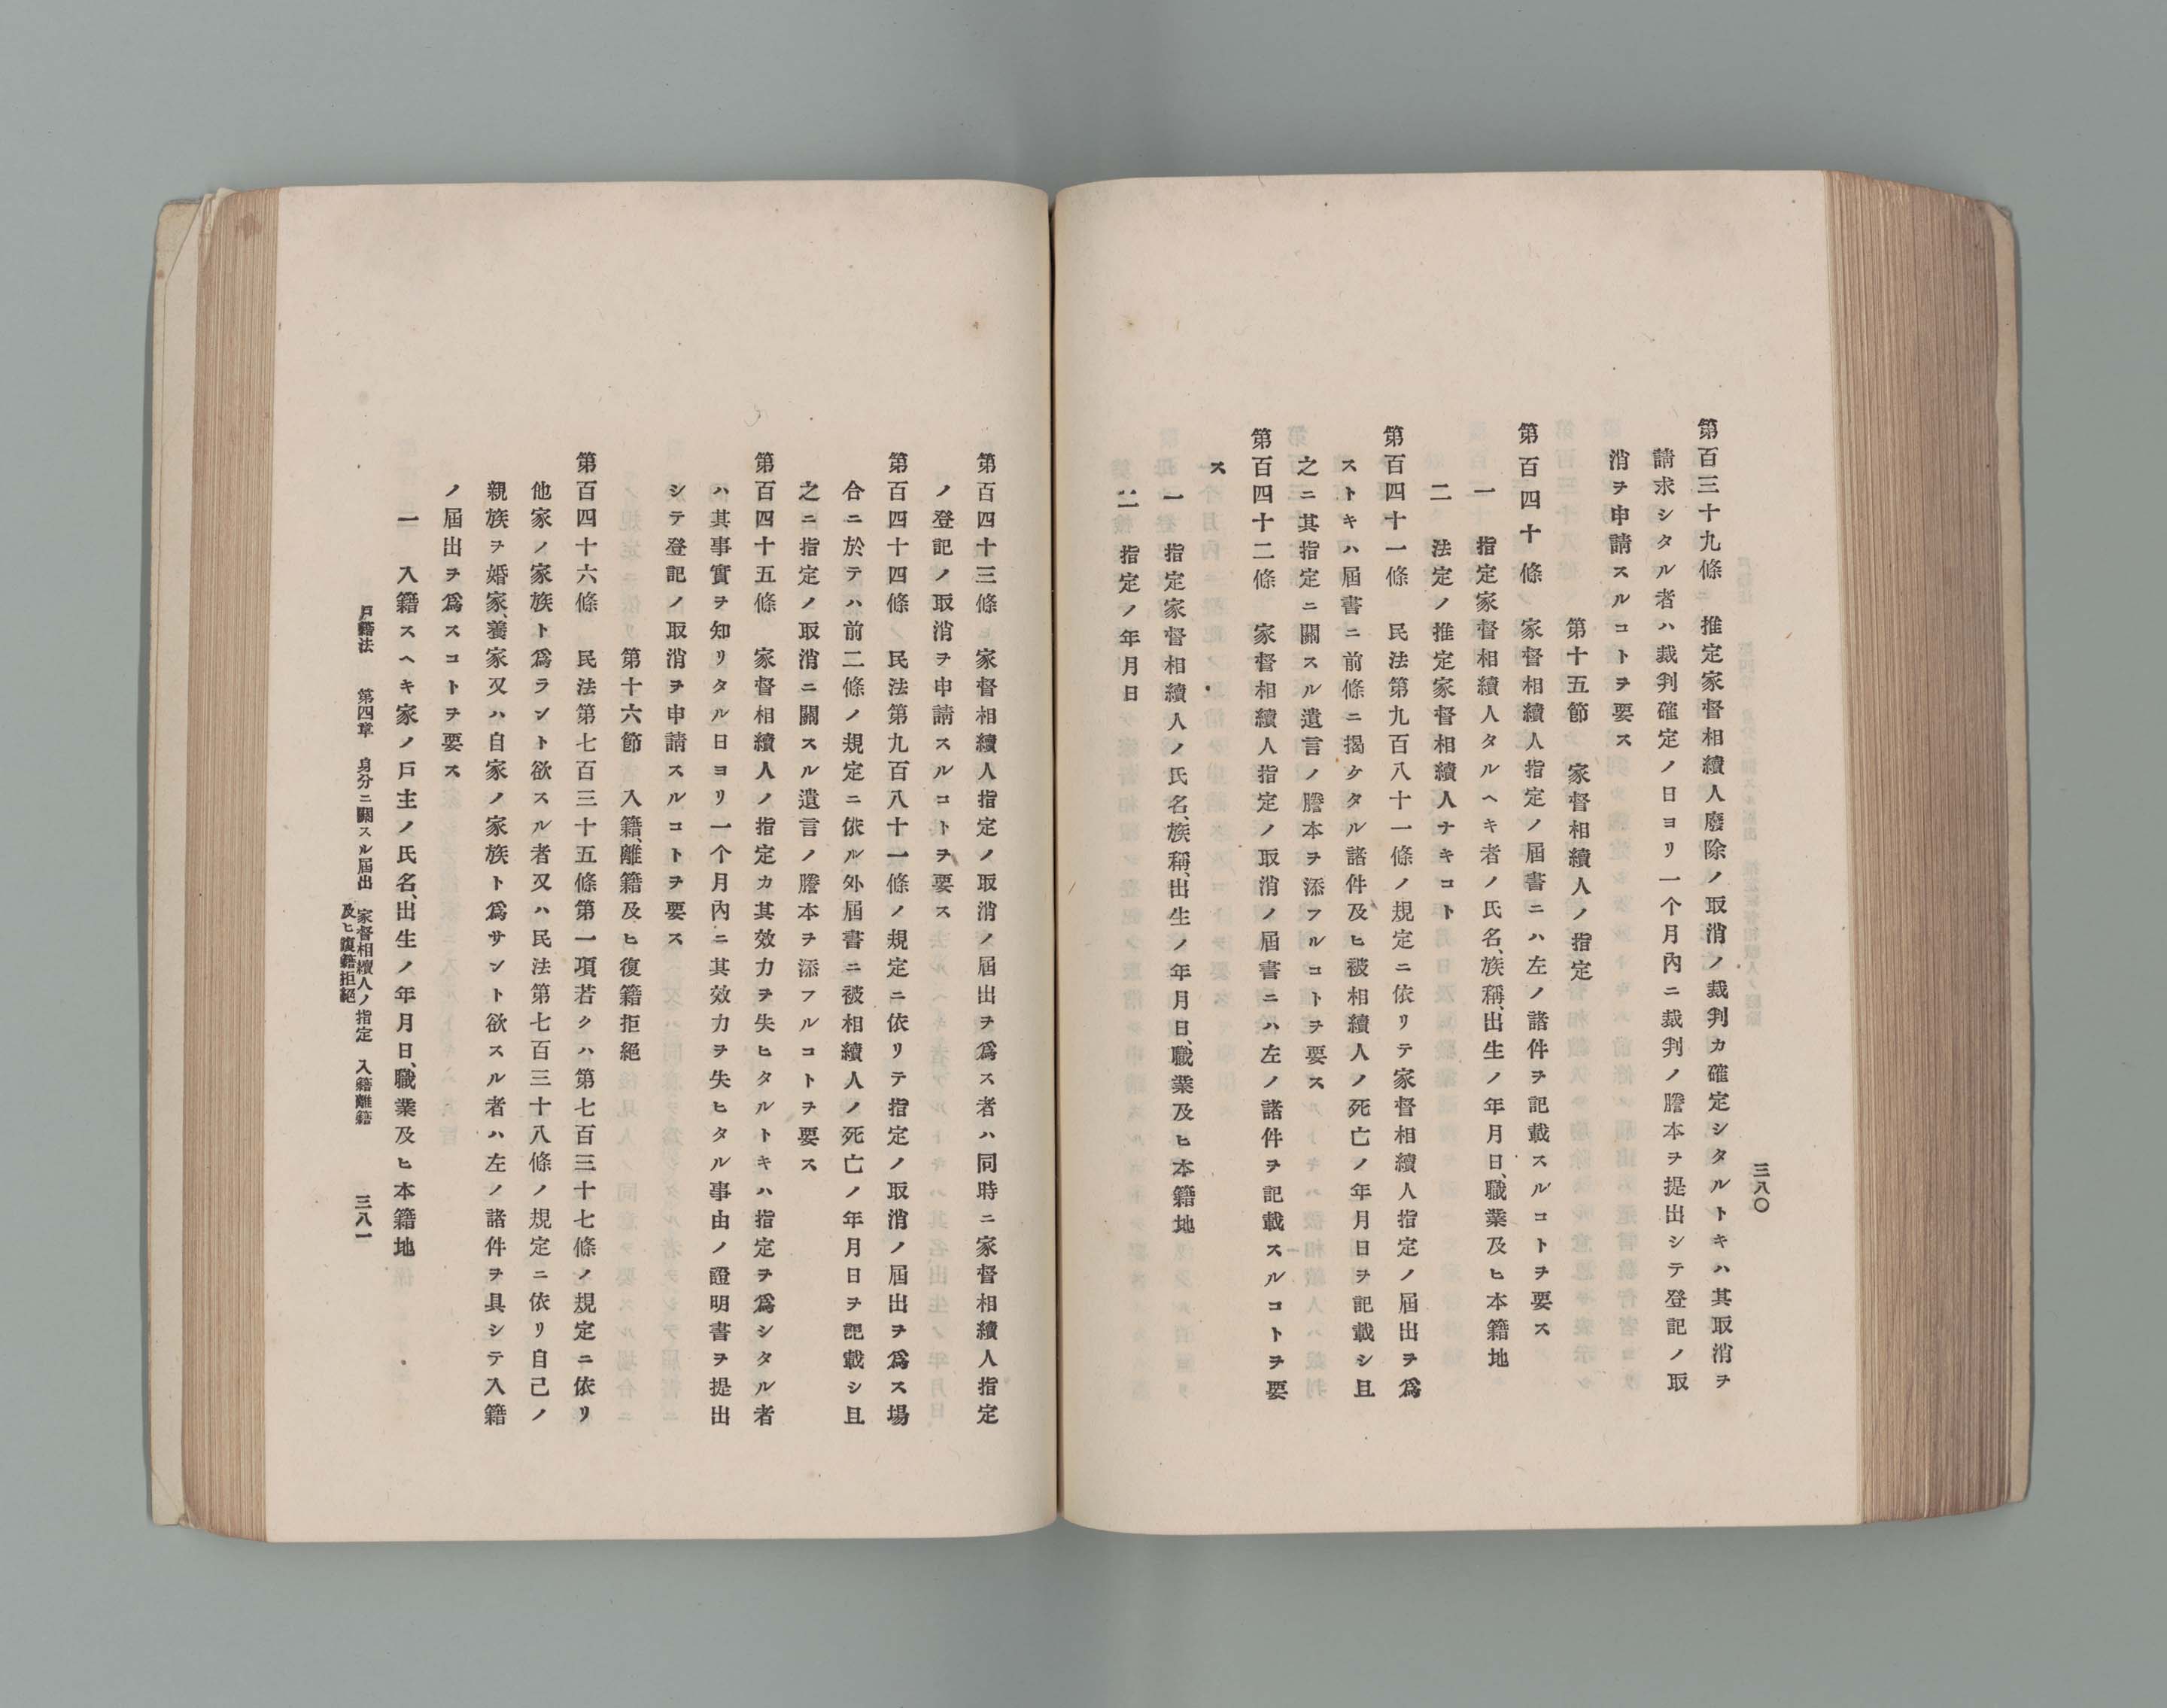 三八〇
第百三十九條　推定家督相續人廢除ノ取消ノ裁判カ確定シタルトキハ其取消ヲ
請求シタル者ハ裁判確定ノ日ヨリ一个月內ニ裁判ノ謄本ヲ提出シテ登記ノ取
消ヲ申請スルコトヲ要ス
第十五節　家督相續人ノ指定
第百四十條　家督相續人指定ノ屆書ニハ左ノ諸件ヲ記載スルコトヲ要ス
一　指定家督相續人タルヘキ者ノ氏名、族稱、出生ノ年月日、職業及ヒ本籍地
二　法定ノ推定家督相續人ナキコト
第百四十一條　民法第九百八十一條ノ規定ニ依リテ家督相續人指定ノ屆出ヲ爲
ストキハ屆書ニ前條ニ揭ケタル諸件及ヒ被相續人ノ死亡ノ年月日ヲ記載シ且
之ニ其指定ニ關スル遺言ノ謄本ヲ添フルコトヲ要ス
第百四十二條　家督相續人指定ノ取消ノ屆書ニハ左ノ諸件ヲ記載スルコトヲ要
ス
一　指定家督相續人ノ氏名、族稱、出生ノ年月日、職業及ヒ本籍地
二　指定ノ年月日
第百四十三條　家督相續人指定ノ取消ノ屆出ヲ爲ス者ハ同時ニ家督相續人指定
ノ登記ノ取消ヲ申請スルコトヲ要ス
第百四十四條　民法第九百八十一條ノ規定ニ依リテ指定ノ取消ノ屆出ヲ爲ス場
合ニ於テハ前二條ノ規定ニ依ル外屆書ニ被相續人ノ死亡ノ年月日ヲ記載シ且
之ニ指定ノ取消ニ關スル遺言ノ謄本ヲ添フルコトヲ要ス
第百四十五條　家督相續人ノ指定カ其效力ヲ失ヒタルトキハ指定ヲ爲シタル者
ハ其事實ヲ知リタル日ヨリ一个月內ニ其效力ヲ失ヒタル事由ノ證明書ヲ提出
シテ登記ノ取消ヲ申請スルコトヲ要ス
第十六節　入籍、離籍及ヒ復籍拒絕
第百四十六條　民法第七百三十五條第一項若クハ第七百三十七條ノ規定ニ依リ
他家ノ家族ト爲ラント欲スル者又ハ民法第七百三十八條ノ規定ニ依リ自己ノ
親族ヲ婚家、養家又ハ自家ノ家族ト爲サント欲スル者ハ左ノ諸件ヲ具シテ入籍
ノ屆出ヲ爲スコトヲ要ス
一　入籍スヘキ家ノ戶主ノ氏名、出生ノ年月日、職業及ヒ本籍地
戶籍法　第四章　身分ニ關スル屆出　家督相續人ノ指定　入籍離籍
及ヒ復籍拒絕
三八一